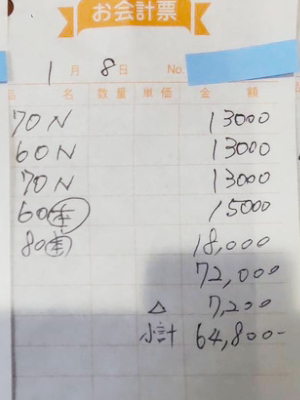 お会計票
1月 8日 No.
品 名 数量 単価 金 額
70N 13000
60N 13000
70N 13000
60 15000
80 18,000
72,000
△ 7,200
小計 64,800-